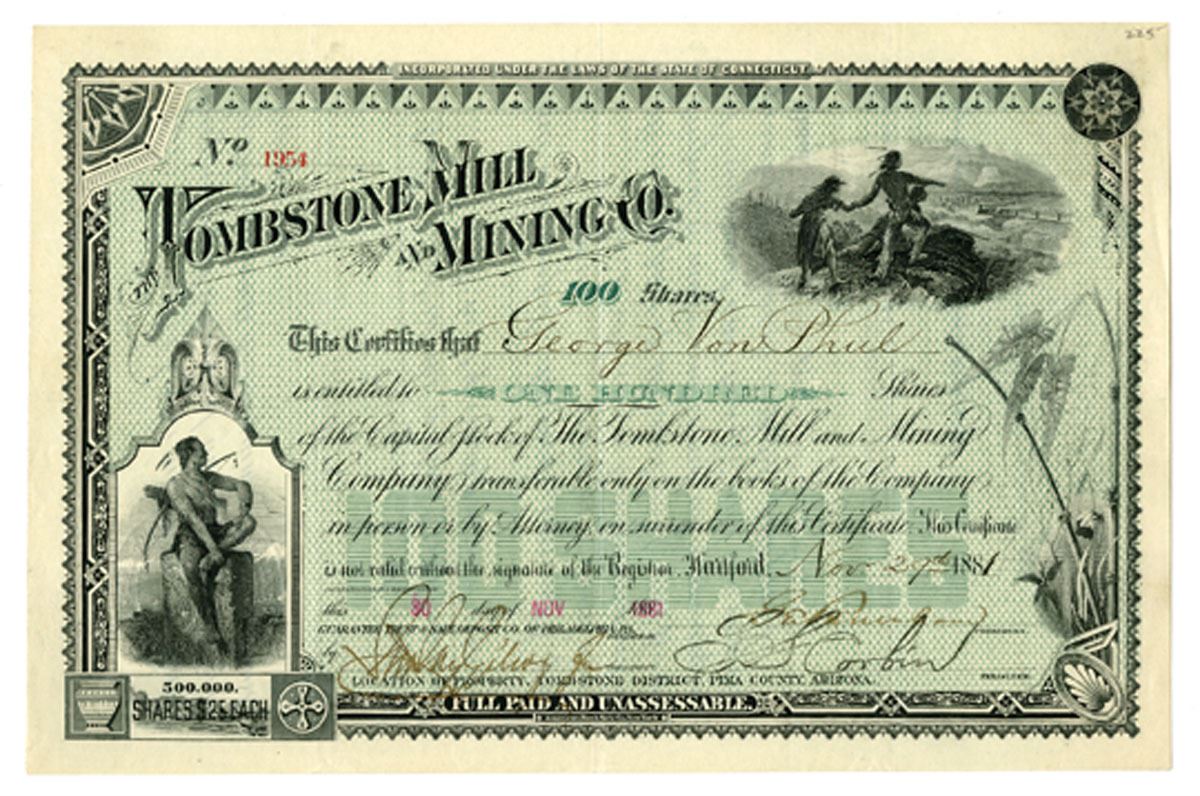 225
INCORPORATED UNDER THE LAWS OF THE STATE OF CONNECTICUT
No. 1954
THE TOMBSTONE MILL
AND MINING CO.
100 Shares
This Certifies that George Von Phul
is entitled to ONE HUNDRED Shares
of the Capital Stock of The Tombstone Mill and Mining
Company, transferable only on the books of the Company
in person or by Attorney, on surrender of this Certificate. This Certificate
is not valid without the signature of the Registrar. Hartford, Nov 29th 1881
100 SHARES
this 30 day of NOV 1881
GUARANTEE TRUST & SAFE DEPOSIT CO. OF PHILADELPHIA, PA.
by Corbin
LOCATION OF PROPERTY, TOMBSTONE DISTRICT, PIMA COUNTY, ARIZONA.
PRESIDENT.
500.000.
SHARES $25 EACH
FULL PAID AND UNASSESSABLE.